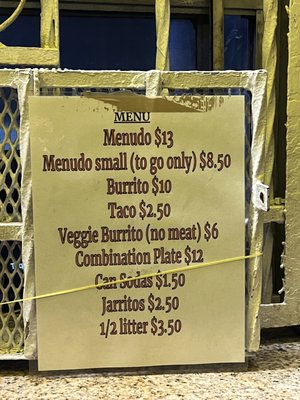 MENU
Menudo $13
Menudo small (to go only) $8.50
Burrito $10
Taco $2.50
Veggie Burrito (no meat) $6
Combination Plate $12
Can Sodas $1.50
Jarritos $2.50
1/2 litter $3.50